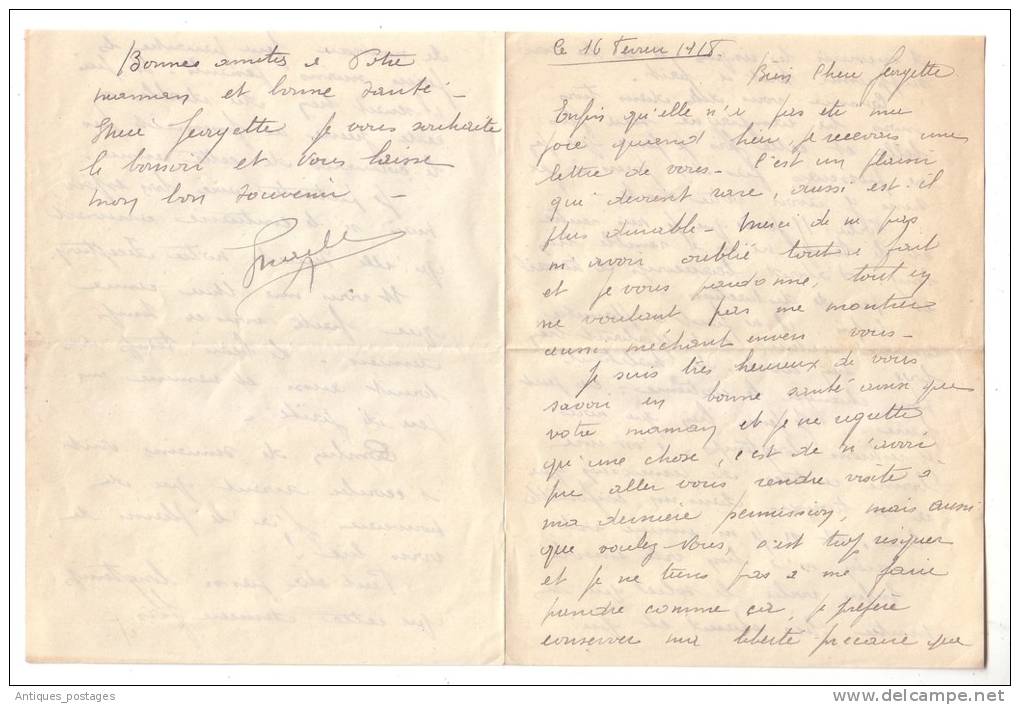 Bonnes amitiés à Votre
maman et bonne santé -
Chère Georgette je vous souhaite
le bonsoir et vous laisse
mon bon souvenir -
Le 16 Février 1918
Bien Chère Georgette
Enfin qu'elle n'a pas été ma
joie quand hier je recevais une
lettre de vous - C'est un plaisir
qui devient rare, aussi est-il
plus durable - Merci de ne pas
m'avoir oublié tout à fait
et je vous pardonne, tout en
ne voulant pas me montrer
aussi méchant envers vous -
Je suis très heureux de vous
savoir en bonne santé ainsi que
votre maman et je ne regrette
qu'une chose, c'est de n'avoir
pu aller vous rendre visite à
ma dernière permission, mais aussi
que voulez-vous, c'est trop risquer
et je ne tiens pas à me faire
prendre comme ça, je préfère
conserver ma liberté précaire que
Antiques_postages
www.delcampe.net